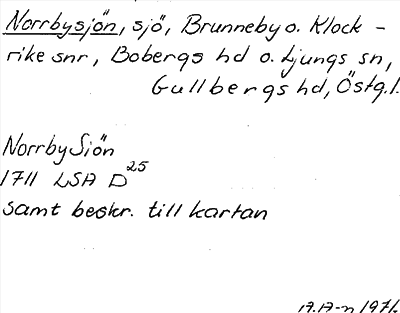 Norrbysjön, sjö, Brunneby o. Klock-
rike snr, Bobergs hd o. Ljungs sn,
Gullbergs hd, Östg.l.
Norrby Siön
1711 LSA D25
samt beskr. till kartan
A.A-n 1971.